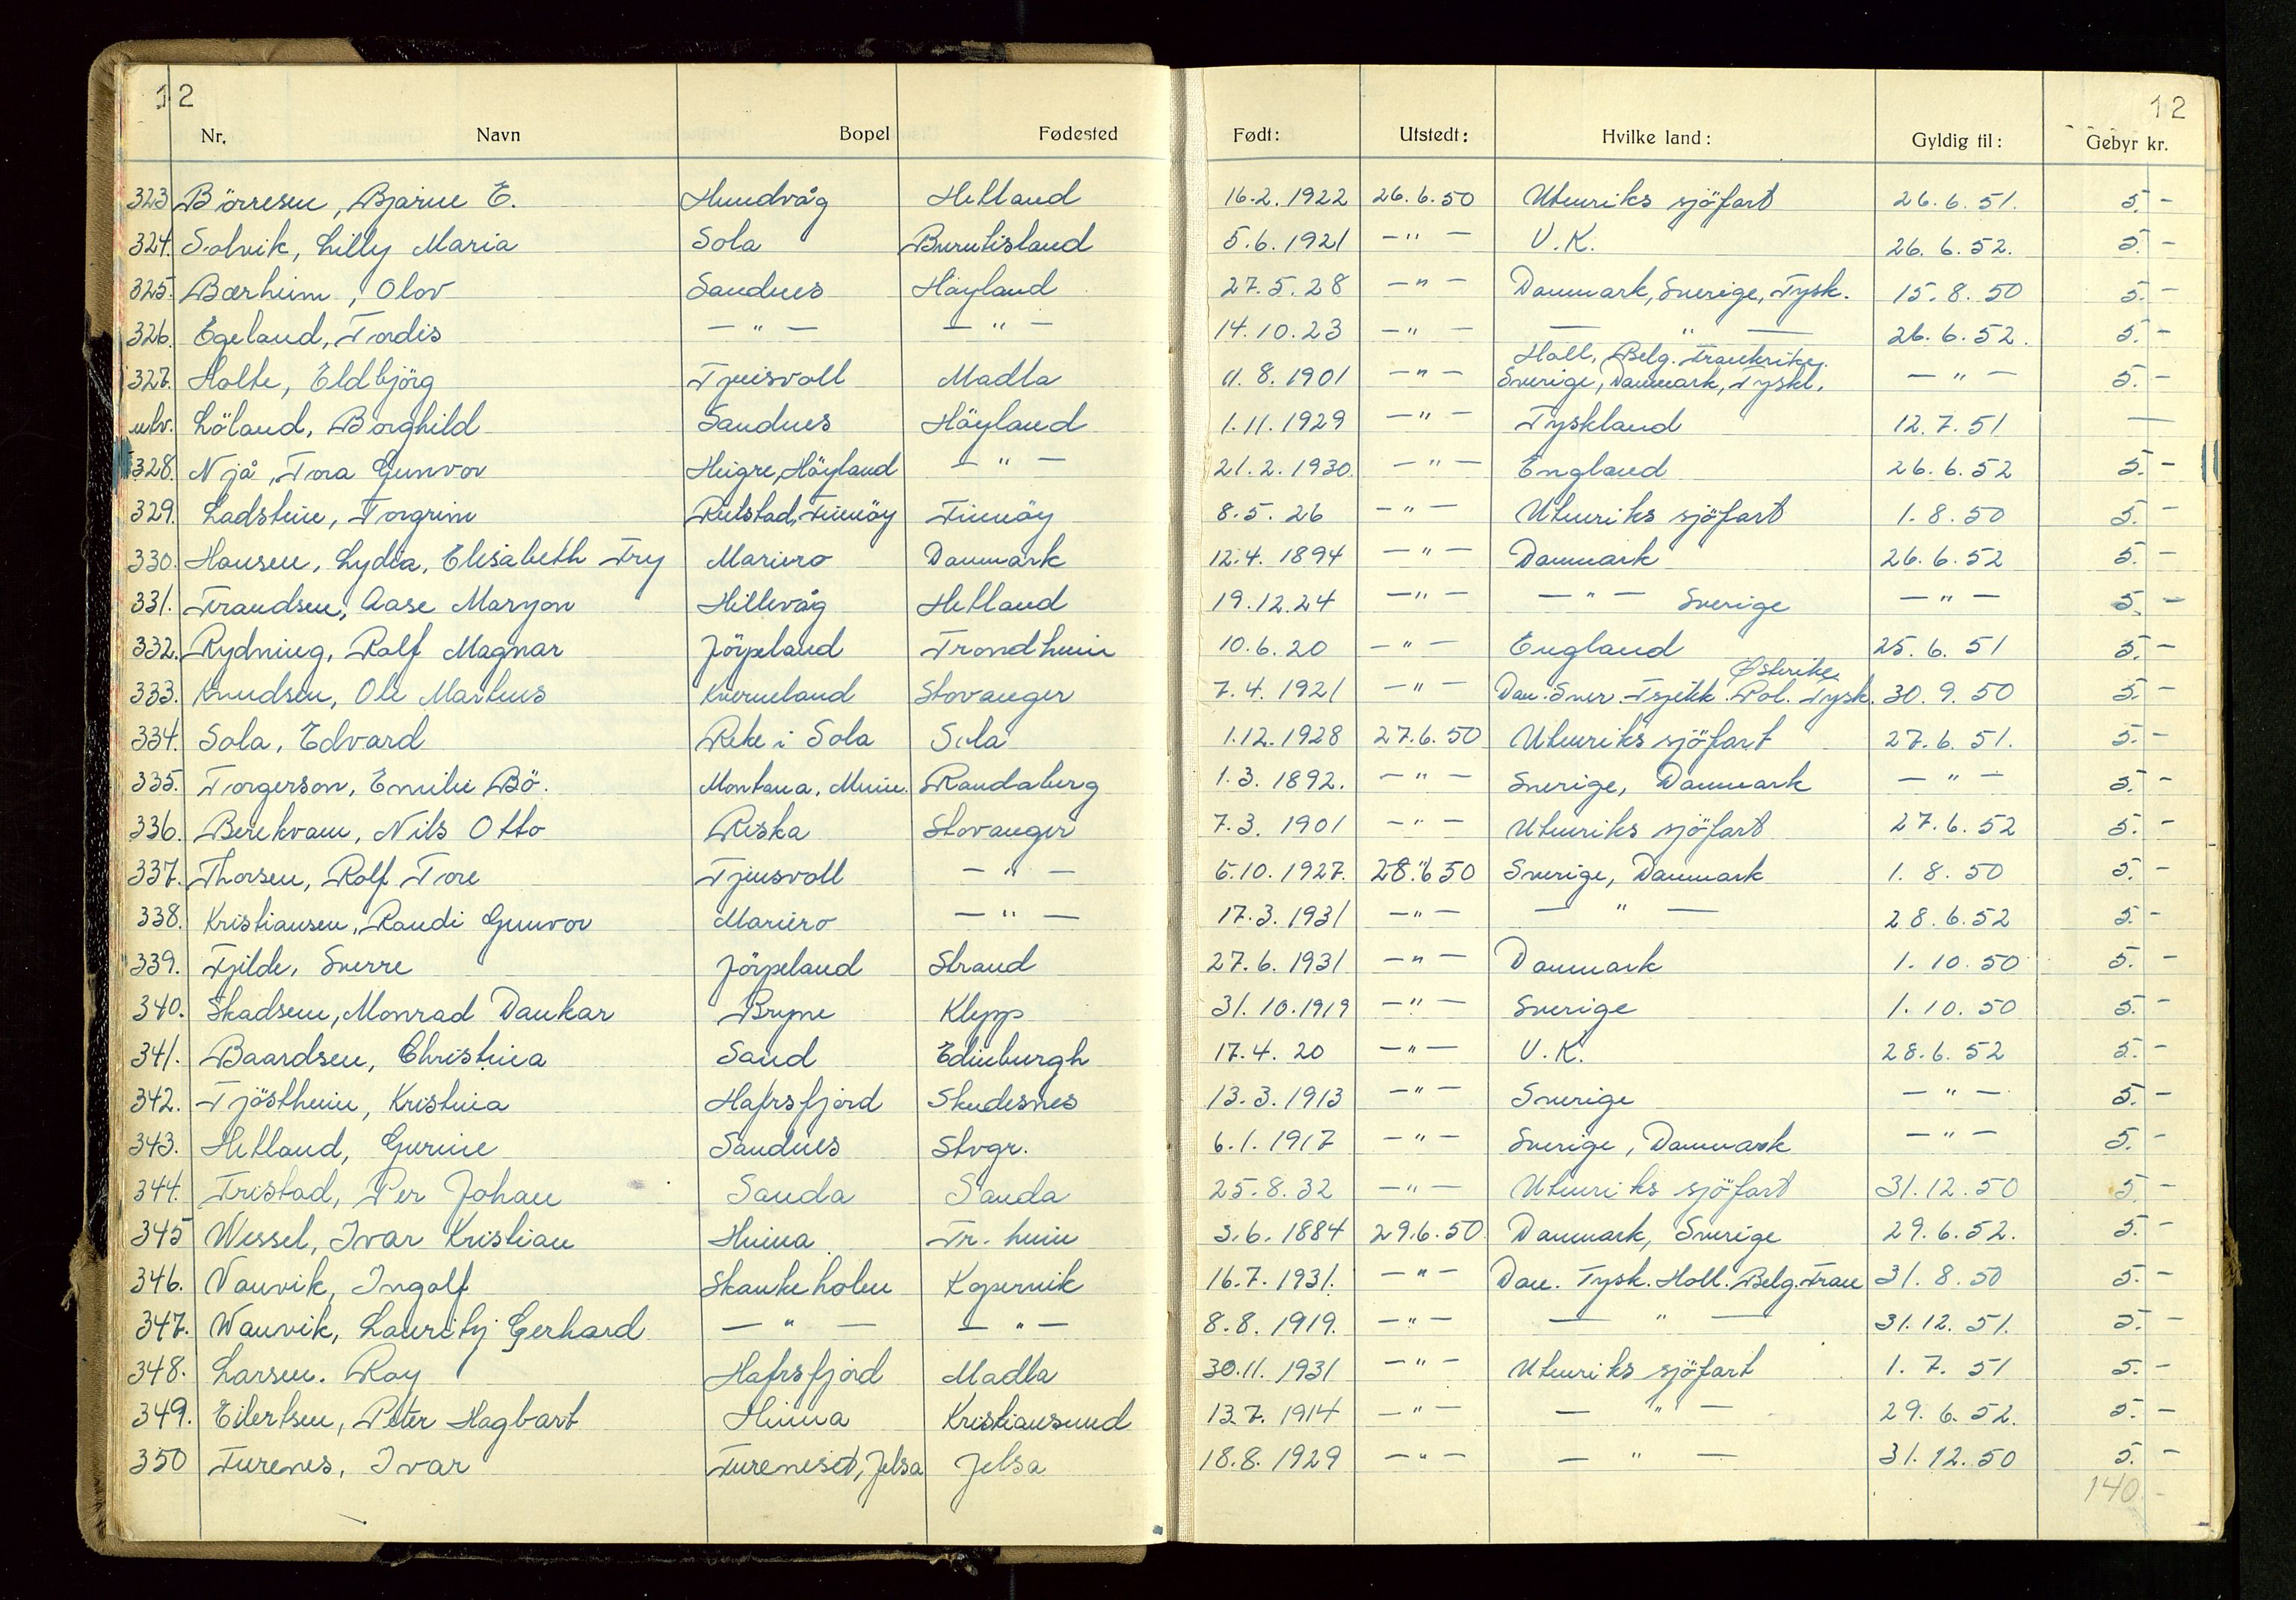 12 12
Nr. Navn Bopel Fødested Født: Utstedt: Hvilke land: Gyldig til: Gebyr kr.
323 Börresen, Bjarne E. Hundvåg Hetland 16.2.1922 26.6.50 Utenriks sjöfart 26.6.51. 5. -
324. Solvik, Lilly Maria Sola Burntisland 5.6.1921 - " - U.K. 26.6.52. 5. -
325. Bærheim, Olov Sandnes Höyland 27.5.28 - " - Danmark, Sverige, Tysk. 15.8.50 5. -
326. Egeland, Tordis - " - - " - 14.10.23 - " - - " - 26.6.52. 5. -
Holl, Belg. Frankrike,
327. Holte, Eldbjörg Tjensvoll Madla 11.8.1901 - " - Sverige, Danmark, Tyskl. - " - 5. -
ulv. Löland, Borghild Sandnes Höyland 1.11.1929 - " - Tyskland 12.7.51 —
328. Njå, Tora Gunvor Heigre, Höyland - " - 21.2.1930. - " - England 26.6.52 5. -
329. Ladstein, Torgrim Reilstad, Finnöy Finnöy 8.5.26 - " - Utenriks sjöfart 1.8.50 5. -
330. Hansen, Lydia, Elisabeth Fry Mariero Danmark 12.4.1894 - " - Danmark 26.6.52 5. -
331. Frandsen, Aase Maryon Hillevåg Hetland 19.12.24 - " - - " - Sverige - " - 5. -
332. Rydning, Ralf Magnar Jörpeland Trondheim 10.6.20 - " - England 25.6.51 5. -
Østerike
333. Knudsen, Ole Martens Kverneland Stavanger 7.4.1921 - " - Dan. Sver. Tsjekk. Pol. Tysk. 30.9.50 5. -
334. Sola, Edvard Reke i Sola Sola 1.12.1928 27.6.50 Utenriks sjöfart 27.6.51. 5. -
335. Torgerson, Emilie Bö. Montana, Minn. Randaberg 1.3.1892. - " - Sverige, Danmark - " - 5. -
336. Berekvam, Nils Otto Riska Stavanger 7.3.1901 - " - Utenriks sjöfart 27.6.52 5. -
337. Thorsen, Rolf Tore Tjensvoll - " - 6.10.1927. 28.6 50 Sverige, Danmark 1.8.50 5. -
338. Kristiansen, Randi Gunvor Mariero - " - 17.3.1931 - " - - " - 28.6.52 5. -
339. Fjelde, Sverre Jörpeland Strand 27.6.1931 - " - Danmark 1.10.50 5. -
340. Skadsem, Monrad Dankar Bryne Klepp 31.10.1919 - " - Sverige 1.10.50 5. -
341. Baardsen, Christina Sand Edinburgh 17.4.20 - " - U.K. 28.6.52 5. -
342. Tjöstheim, Kristina Hafrsfjord Skudesnes 13.3.1913 - " - Sverige - " - 5. -
343. Hetland, Gurine Sandnes Stvgr. 6.1.1917 - " - Sverige, Danmark - " - 5. -
344. Fristad, Per Johan Sauda Sauda 25.8.32 - " - Utenriks sjöfart 31.12.50 5. -
345 Wessel, Ivar Kristian Hinna Tr. heim 3.6.1884 29.6.50. Danmark, Sverige 29.6.52. 5. -
346. Vanvik, Ingolf Skankeholm Kopervik 16.7.1931. - " - Dan. Tysk. Holl. Belg. Fran 31.8.50 5. -
347. Wanvik, Lauritz Gerhard - " - - " - 8.8.1919. - " - - " - 31.12.51. 5. -
348. Larsen. Roy Hafrsfjord Madla 30.11.1931 - " - Utenriks sjöfart 1.7.51 5. -
349. Eilertsen, Peter Hagbart Hinna Kristiansund 13.7.1914 - " - - " - 29.6.52. 5. -
350 Furenes, Ivar Fureneset, Jelsa Jelsa 18.8.1929 - " - - " - 31.12.50 5. -
140. -